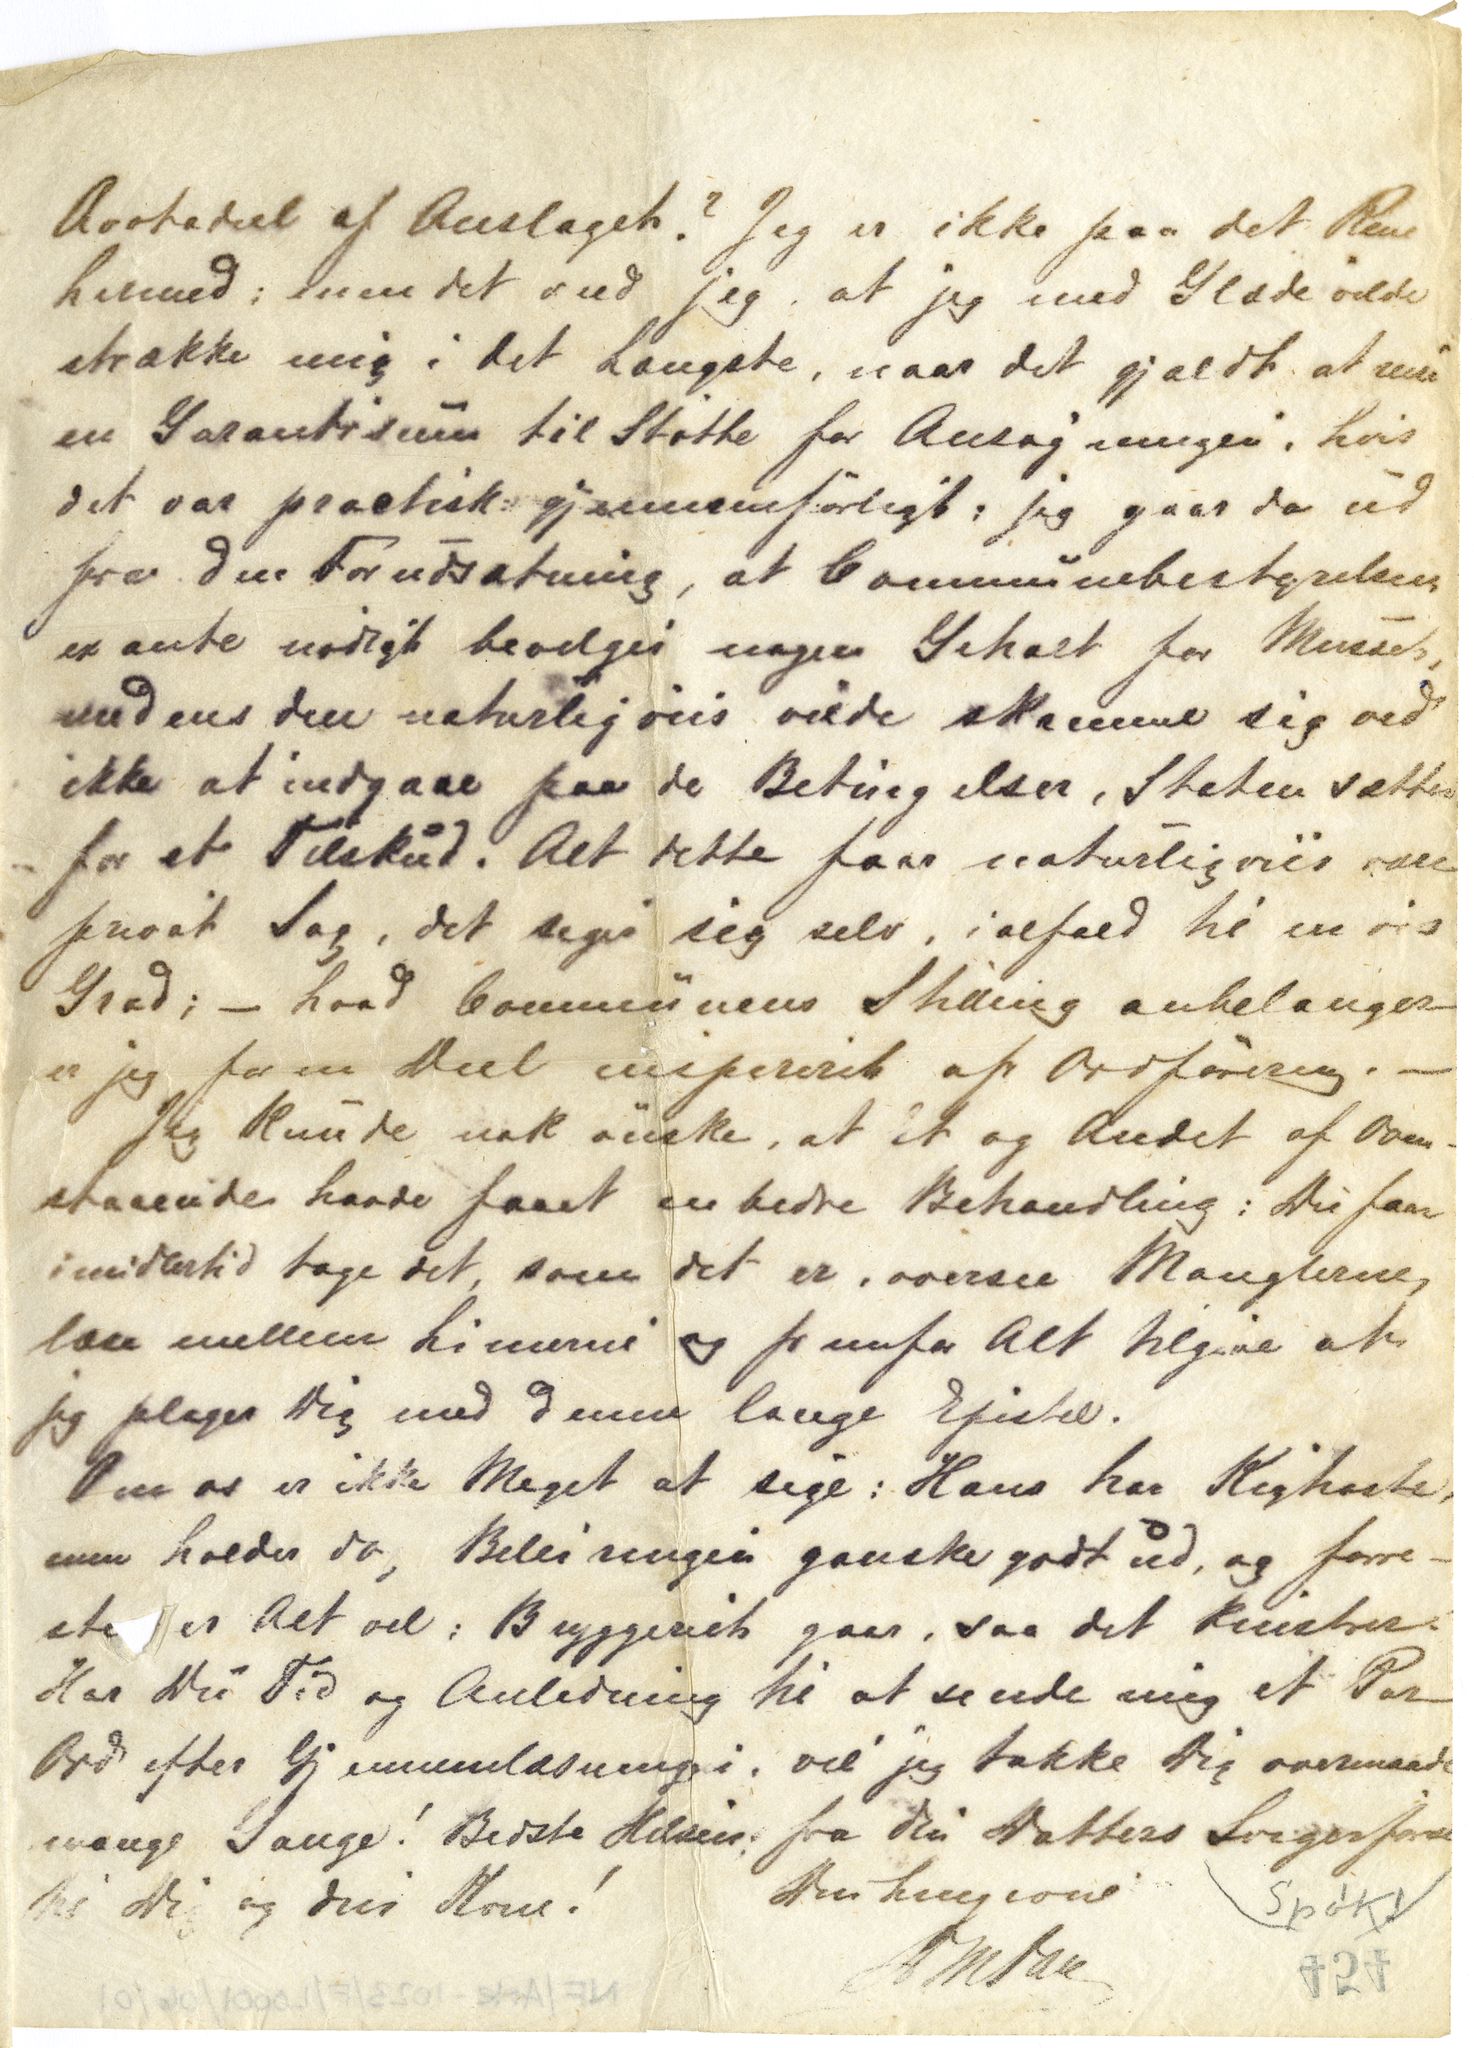 Brøkdeel af Anslaget? Jeg er ikke paa det Rene
hermed; men det veed jeg, at jeg med Glæde vilde
strække mig i det Længste, naar det gjældt at reise
en Garantisum til Støtte for Ansøgningen, hvis
det var practisk gjennemførligt; jeg gaar da ud
fra den Forudsætning, at Communebestyrelsen
ex ante nødigt bevilger nogen Gehalt for Musæet,
medens den naturligviis vilde skamme sig ved
ikke at indgaae paa de Betingelser, Staten sætter
for et Tilskud. Alt dette faar naturligviis være
privat Sag, det siger sig selv, ialfald til en vis
Grad; – hvad Communens Stilling anbelanger
er jeg for en Deel inspireret af Ordføreren. –
Jeg kunde nok ønske, at Et og Andet af Oven-
staaende havde faaet en bedre Behandling; Du faar
imidlertid tage det, som det er, oversee Manglerne,
læse mellem Linierne og fremfor Alt tilgive at
jeg plager Dig med denne lange Epistel.
Om os er ikke Meget at sige: Hans har Kighoste,
men holder dog Beleiringen ganske godt ud, og forre-
sten er Alt vel; Bryggeriet gaar, saa det knistrer.
Har Du Tid og Anledning til at sende mig et Par
Ord efter Gjennemlæsningen, vil jeg takke Dig overmaade
mange Gange! Bedste Hilsen fra din Datters Svigerforældre
til Dig og din Kone! Din hengivne
Spøk!
454
NF/Ark-1023/F/L0001/06/01